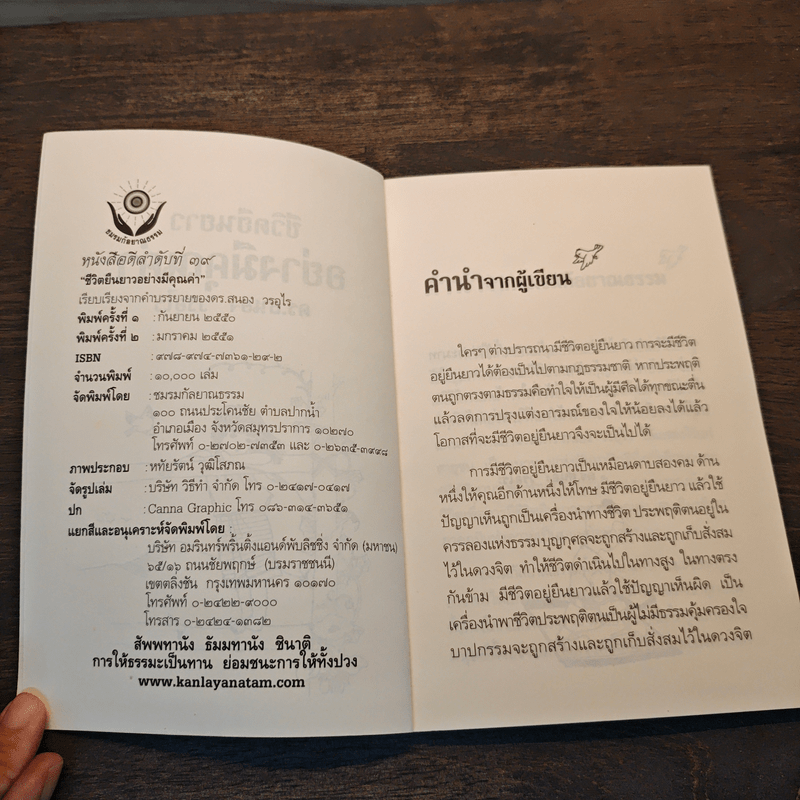 ชมรมกัลยาณธรรม
หนังสือดีลำดับที่ ๓๙
"ชีวิตยืนยาวอย่างมีคุณค่า"
เรียบเรียงจากคำบรรยายของดร.สนอง วรอุไร
พิมพ์ครั้งที่ ๑ : กันยายน ๒๕๕๐
พิมพ์ครั้งที่ ๒ : มกราคม ๒๕๕๑
ISBN : ๙๗๘-๙๗๔-๗๓๖๑-๒๙-๒
จำนวนพิมพ์ : ๑๐,๐๐๐ เล่ม
จัดพิมพ์โดย : ชมรมกัลยาณธรรม
๑๐๐ ถนนประโคนชัย ตำบลปากน้ำ
อำเภอเมือง จังหวัดสมุทรปราการ ๑๐๒๗๐
โทรศัพท์ ๐-๒๗๐๒-๗๓๕๓ และ ๐-๒๖๓๕-๓๙๙๘
ภาพประกอบ : หทัยรัตน์ วุฒิโสภณ
จัดรูปเล่ม : บริษัท วิธีทำ จำกัด โทร ๐-๒๔๑๗-๐๔๑๗
ปก : Canna Graphic โทร ๐๘๖-๓๑๔-๓๖๕๑
แยกสีและอนุเคราะห์จัดพิมพ์โดย :
บริษัท อมรินทร์พริ้นติ้งแอนด์พับลิชชิ่ง จำกัด (มหาชน)
๖๕/๑๖ ถนนชัยพฤกษ์ (บรมราชชนนี)
เขตตลิ่งชัน กรุงเทพมหานคร ๑๐๑๗๐
โทรศัพท์ ๐-๒๔๒๒-๙๐๐๐
โทรสาร ๐-๒๔๒๔-๑๓๘๒
สัพพทานัง ธัมมทานัง ชินาติ
การให้ธรรมะเป็นทาน ย่อมชนะการให้ทั้งปวง
www.kanlayanatam.com
คำนำจากผู้เขียน
ใครๆ ต่างปรารถนามีชีวิตอยู่ยืนยาว การจะมีชีวิต
อยู่ยืนยาวได้ต้องเป็นไปตามกฎธรรมชาติ หากประพฤติ
ตนถูกตรงตามธรรมคือทำใจให้เป็นผู้มีศีลได้ทุกขณะตื่น
แล้วลดการปรุงแต่งอารมณ์ของใจให้น้อยลงได้แล้ว
โอกาสที่จะมีชีวิตอยู่ยืนยาวจึงจะเป็นไปได้
การมีชีวิตอยู่ยืนยาวเป็นเหมือนดาบสองคม ด้าน
หนึ่งให้คุณอีกด้านหนึ่งให้โทษ มีชีวิตอยู่ยืนยาว แล้วใช้
ปัญญาเห็นถูกเป็นเครื่องนำทางชีวิต ประพฤติตนอยู่ใน
ครรลองแห่งธรรมบุญกุศลจะถูกสร้างและถูกเก็บสั่งสม
ไว้ในดวงจิต ทำให้ชีวิตดำเนินไปในทางสูง ในทางตรง
กันข้าม มีชีวิตอยู่ยืนยาวแล้วใช้ปัญญาเห็นผิด เป็น
เครื่องนำพาชีวิตประพฤติตนเป็นผู้ไม่มีธรรมคุ้มครองใจ
บาปกรรมจะถูกสร้างและถูกเก็บสั่งสมไว้ในดวงจิต